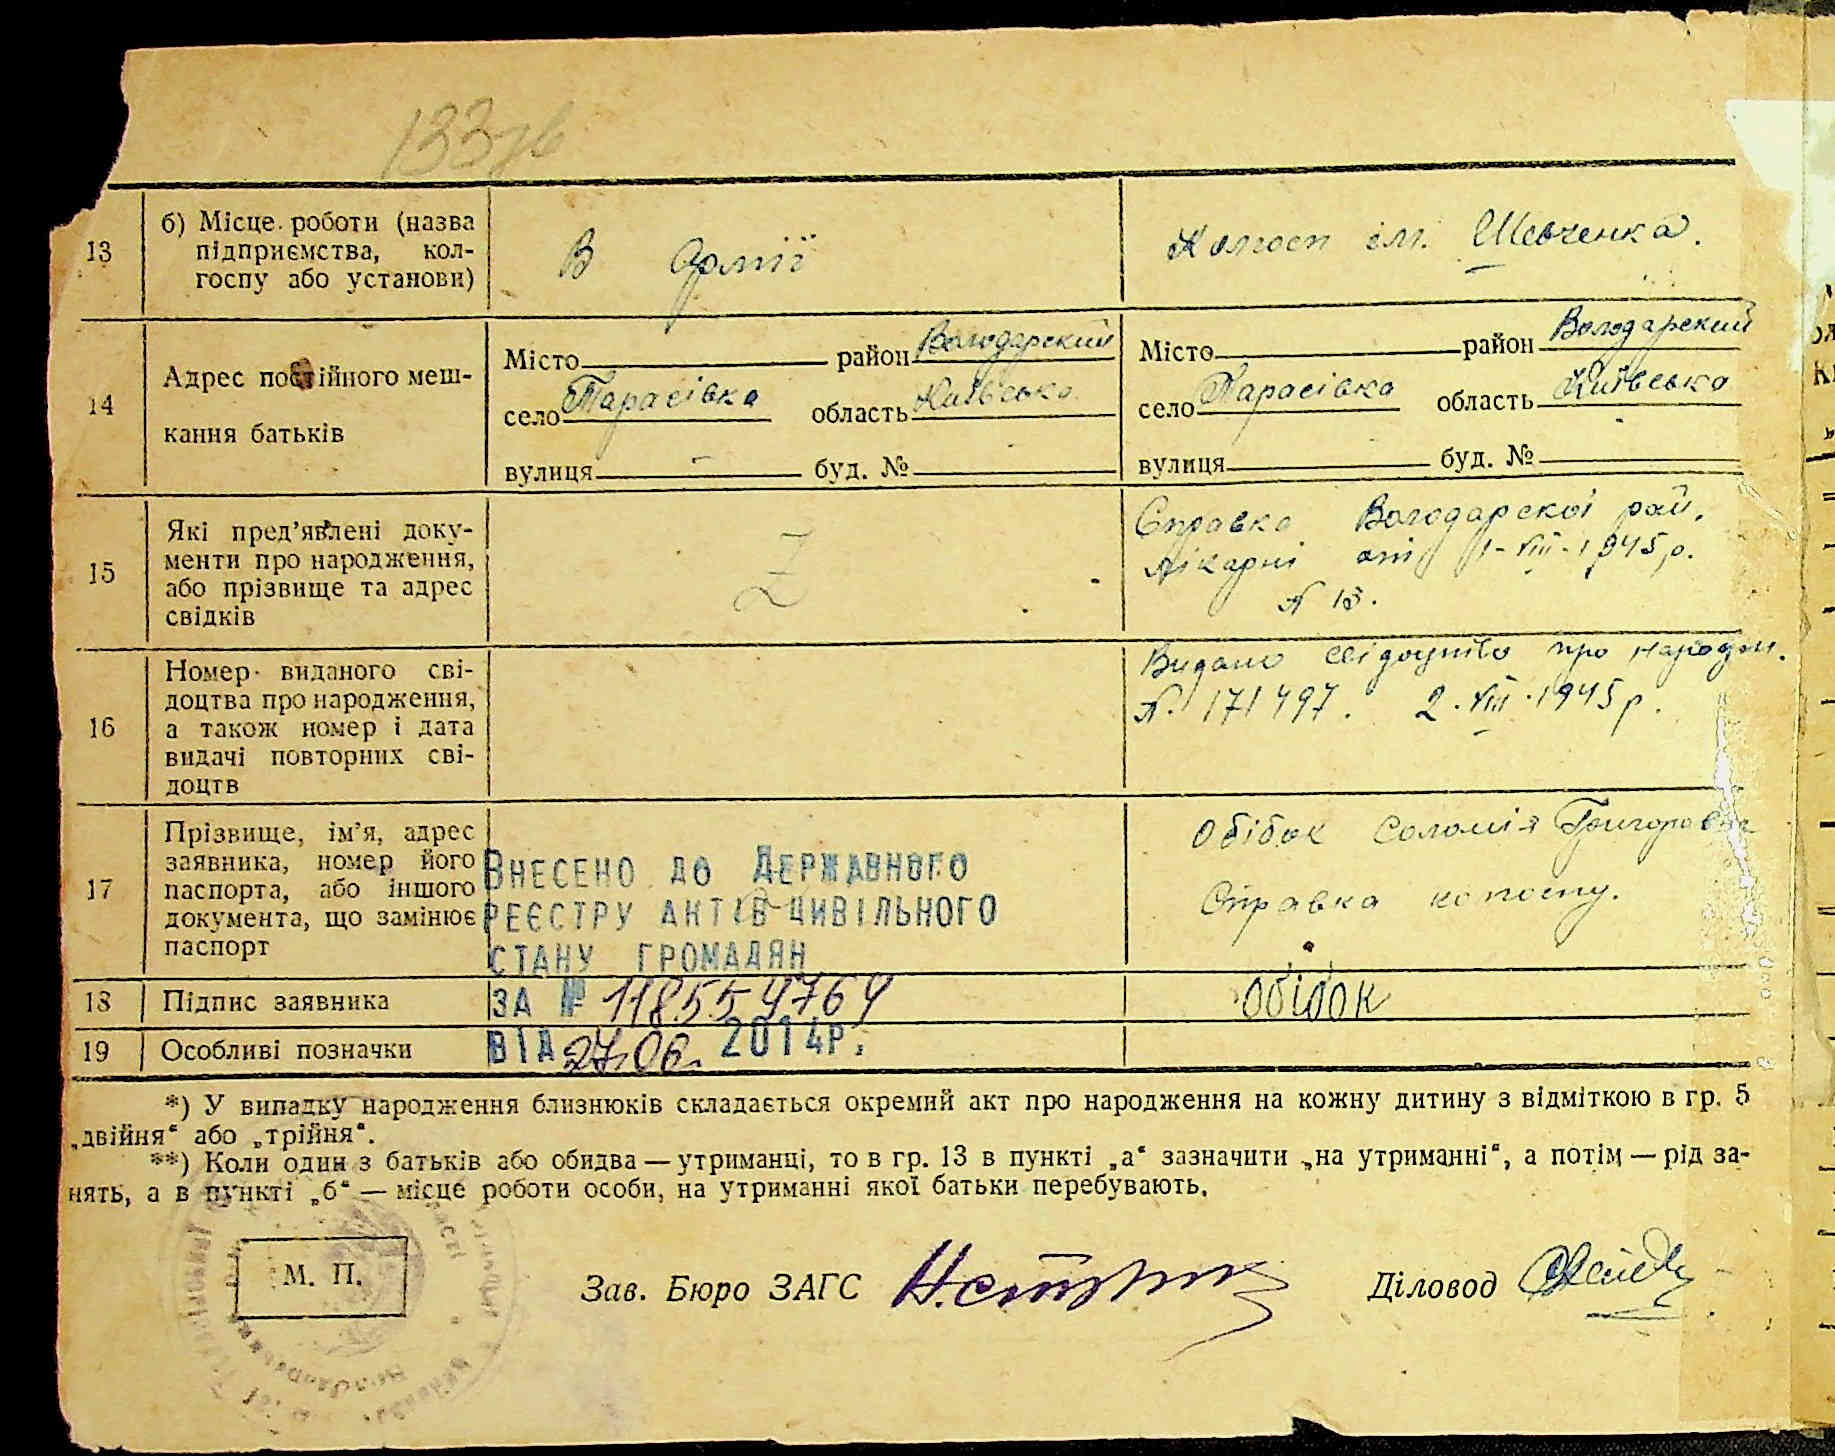 13
б) Місце роботи (назва
підприємства, кол-
госпу або установи)
В Армії
Колгосп ім. Шевченка.
14
Адрес постійного меш-
кання батьків
Місто район Володарский
село Тарасівка область Київська
вулиця — буд. №
Місто район Володарский
село Тарасівка область Київська
вулиця буд. №
15
Які пред'явлені доку-
менти про народження,
або прізвище та адрес
свідків
Z
Справка Володарскої рай.
лікарні от 1-VIII-1945 р.
N 18.
16
Номер виданого сві-
доцтва про народження,
а також номер і дата
видачі повторних сві-
доцтв
Видано свідоцтво про народж.
N. 171497. 2.VIII.1945 р.
17
Прізвище, ім'я, адрес
заявника, номер його
паспорта, або іншого
документа, що замінює
паспорт
Внесено до Державного
реєстру актів цивільного
стану громадян
за № 118559769
від 27.06. 2014р.
Обібок Соломія Григоровна
Справка колгоспу.
18
Підпис заявника
Обібок
19
Особливі позначки
*) У випадку народження близнюків складається окремий акт про народження на кожну дитину з відміткою в гр. 5
„двійня“ або „трійня“.
**) Коли один з батьків або обидва — утриманці, то в гр. 13 в пункті „а“ зазначити „на утриманні“, а потім — рід за-
нять, а в пункті „б“ — місце роботи особи, на утриманні якої батьки перебувають.
М. П.
Зав. Бюро ЗАГС
Діловод